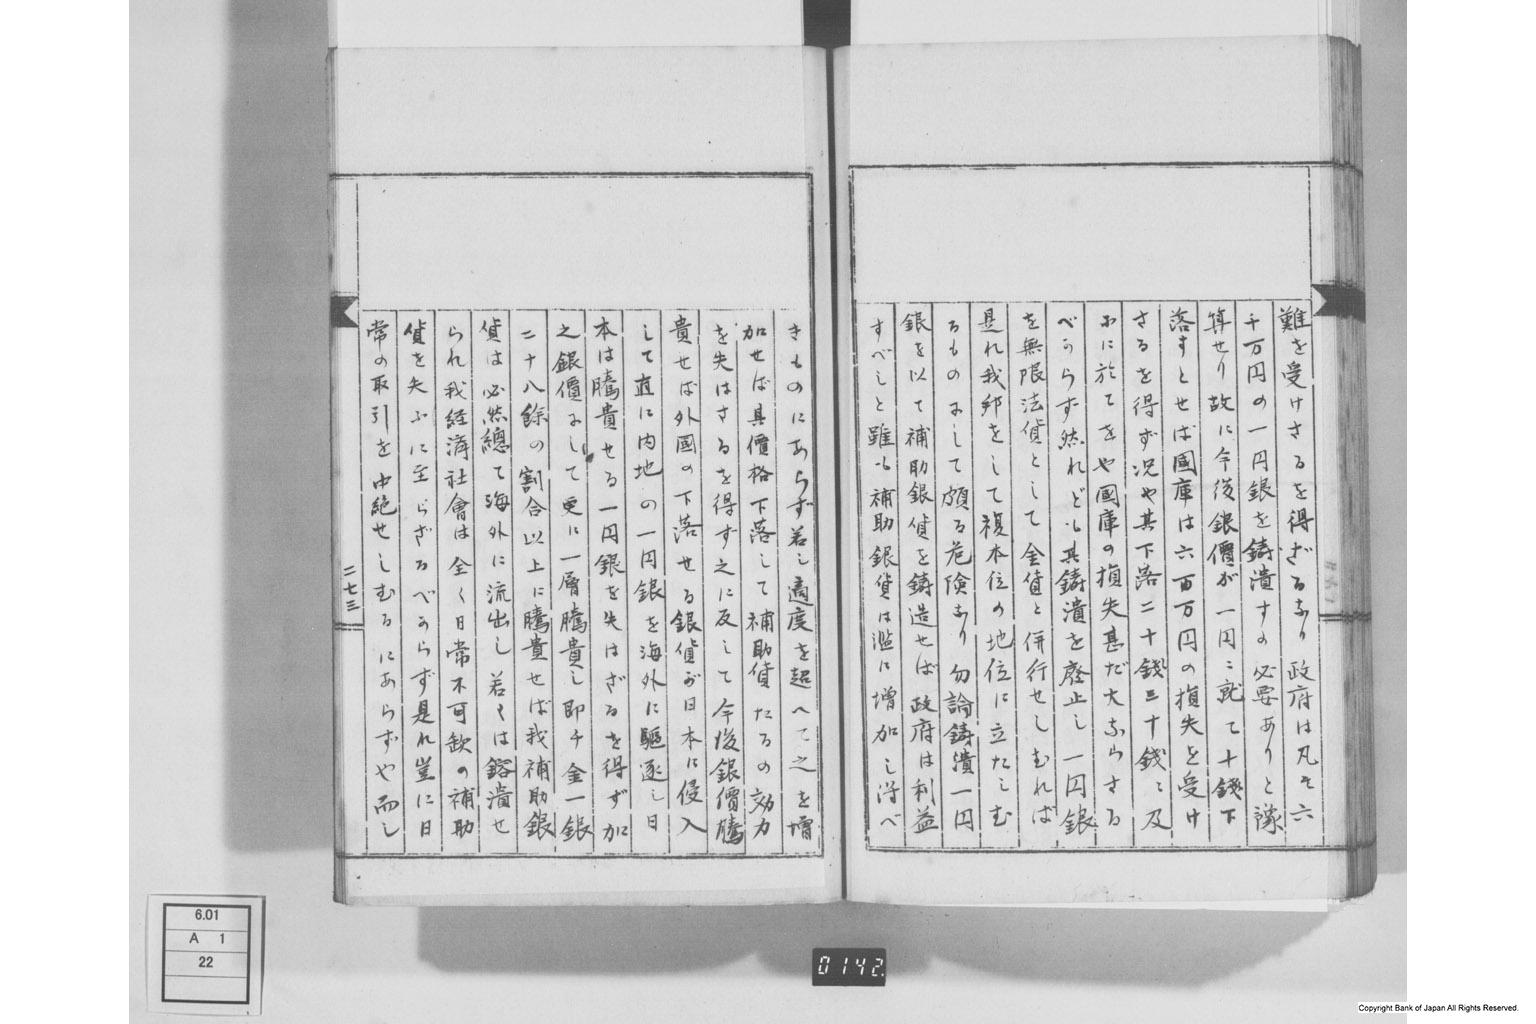 難を受けさるを得ざるなり政府は凡そ六
千万円の一円銀を鋳潰すの必要ありと豫
算せり故に今後銀價が一円ニ就て十錢下
落すとせば國庫は六百万円の損失を受け
さるを得ず况や其下落二十錢三十錢ニ及
ぶに於てをや國庫の損失甚だ大ならさる
べからず然れども其鋳潰を廢止し一円銀
を無限法貨として金貨と併行せしむれば
是れ我邦をして複本位の地位に立たしむ
るものにして頗る危険なり勿論鋳潰一円
銀を以て補助銀貨を鋳造せば政府は利益
すべしと雖も補助銀貨は濫に増加し得べ
きものにあらず若し適度を超へて之を増
加せば其價格下落して補助貨たるの効力
を失はさるを得ず之に反して今後銀價騰
貴せば外國の下落せる銀貨が日本に侵入
して直に内地の一円銀を海外に驅逐し日
本は騰貴せる一円銀を失はざるを得ず加
之銀價にして更に一層騰貴し即チ金一銀
二十八餘の割合以上に騰貴せば我補助銀
貨は必然總て海外に流出し若くは鎔潰せ
られ我経済社會は全く日常不可欽の補助
貨を失ふに至らざるべからず是れ豈に日
常の取引を中絶せしむるにあらずや而し
二七三
6.01
A 1
22
0142
Copyright Bank of Japan All Rights Reserved.